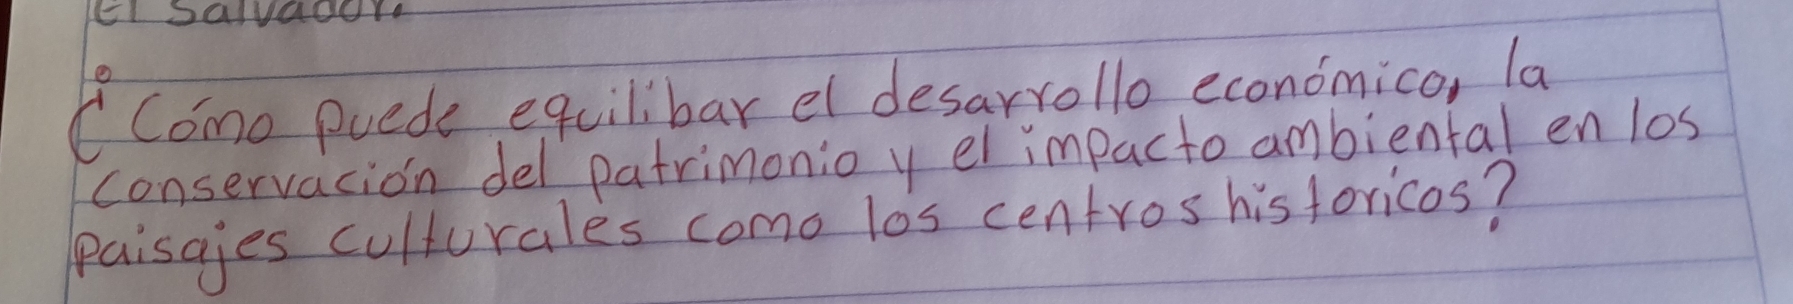 El Salvador.
¿Cómo puede equilibar el desarrollo económico, la
conservación del patrimonio y el impacto ambiental en los
paisajes culturales como los centros historicos?